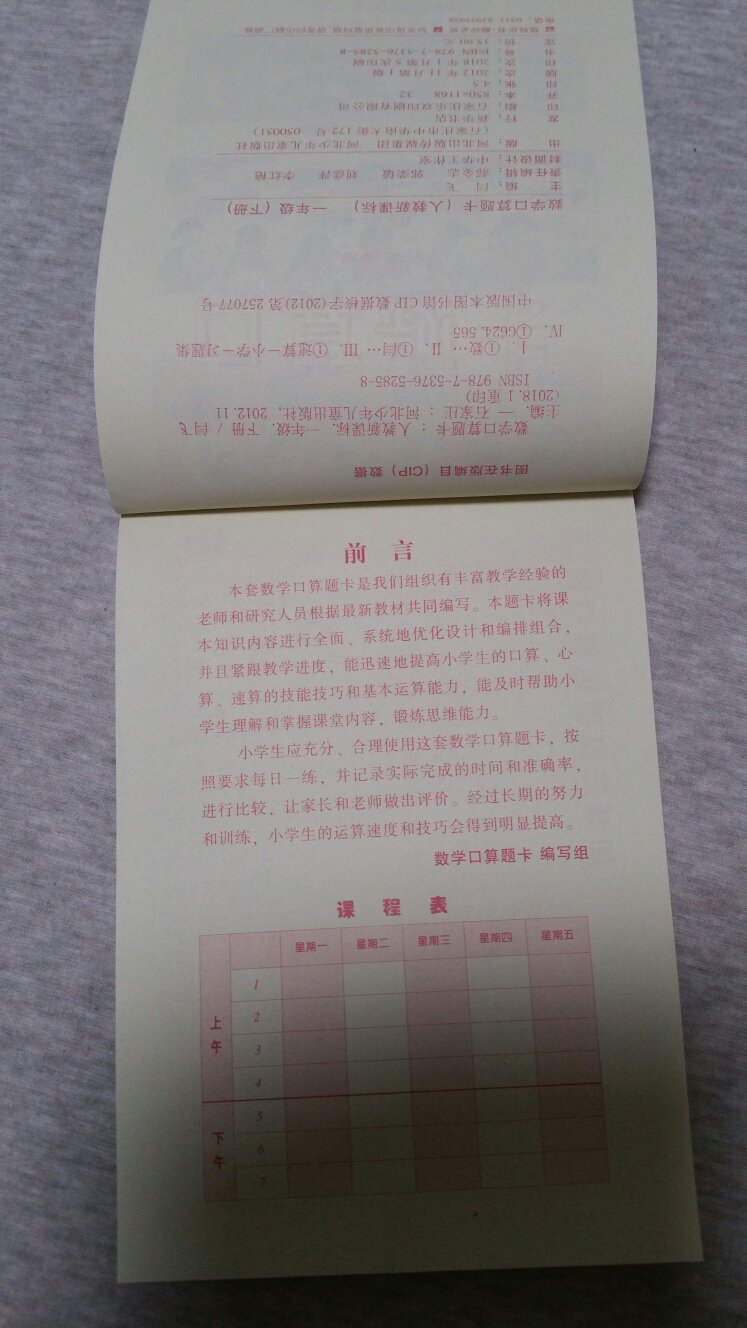 图书在版编目（CIP）数据
数学口算题卡：人教新课标. 一年级. 下册 / 闫飞
主编. — 石家庄：河北少年儿童出版社，2012.11
（2018.1重印）
ISBN 978-7-5376-5285-8
Ⅰ. ①数… Ⅱ. ①闫… Ⅲ. ①速算－小学－习题集
Ⅳ. ①G624.565
中国版本图书馆CIP数据核字(2012)第257077号
数学口算题卡（人教新课标） 一年级（下册）
主 编：闫 飞
责任编辑：郝金志 郭荣敏 刘彦萍 李红艳
封面设计：中华工作室
出 版：河北出版传媒集团 河北少年儿童出版社
（石家庄市中华南大街172号 050051）
发 行：新华书店
印 刷：石家庄乐双印刷有限公司
开 本：850×1168 32
印 张：4.5
版 次：2012年11月第1版
印 次：2018年1月第5次印刷
书 号：ISBN 978-7-5376-5285-8
定 价：15.90元
前 言
本套数学口算题卡是我们组织有丰富教学经验的
老师和研究人员根据最新教材共同编写。本题卡将课
本知识内容进行全面、系统地优化设计和编排组合，
并且紧跟教学进度，能迅速地提高小学生的口算、心
算、速算的技能技巧和基本运算能力，能及时帮助小
学生理解和掌握课堂内容，锻炼思维能力。
小学生应充分、合理使用这套数学口算题卡，按
照要求每日一练，并记录实际完成的时间和准确率，
进行比较，让家长和老师做出评价。经过长期的努力
和训练，小学生的运算速度和技巧会得到明显提高。
数学口算题卡 编写组
课 程 表
星期一 星期二 星期三 星期四 星期五
上午
1
2
3
4
下午
5
6
7